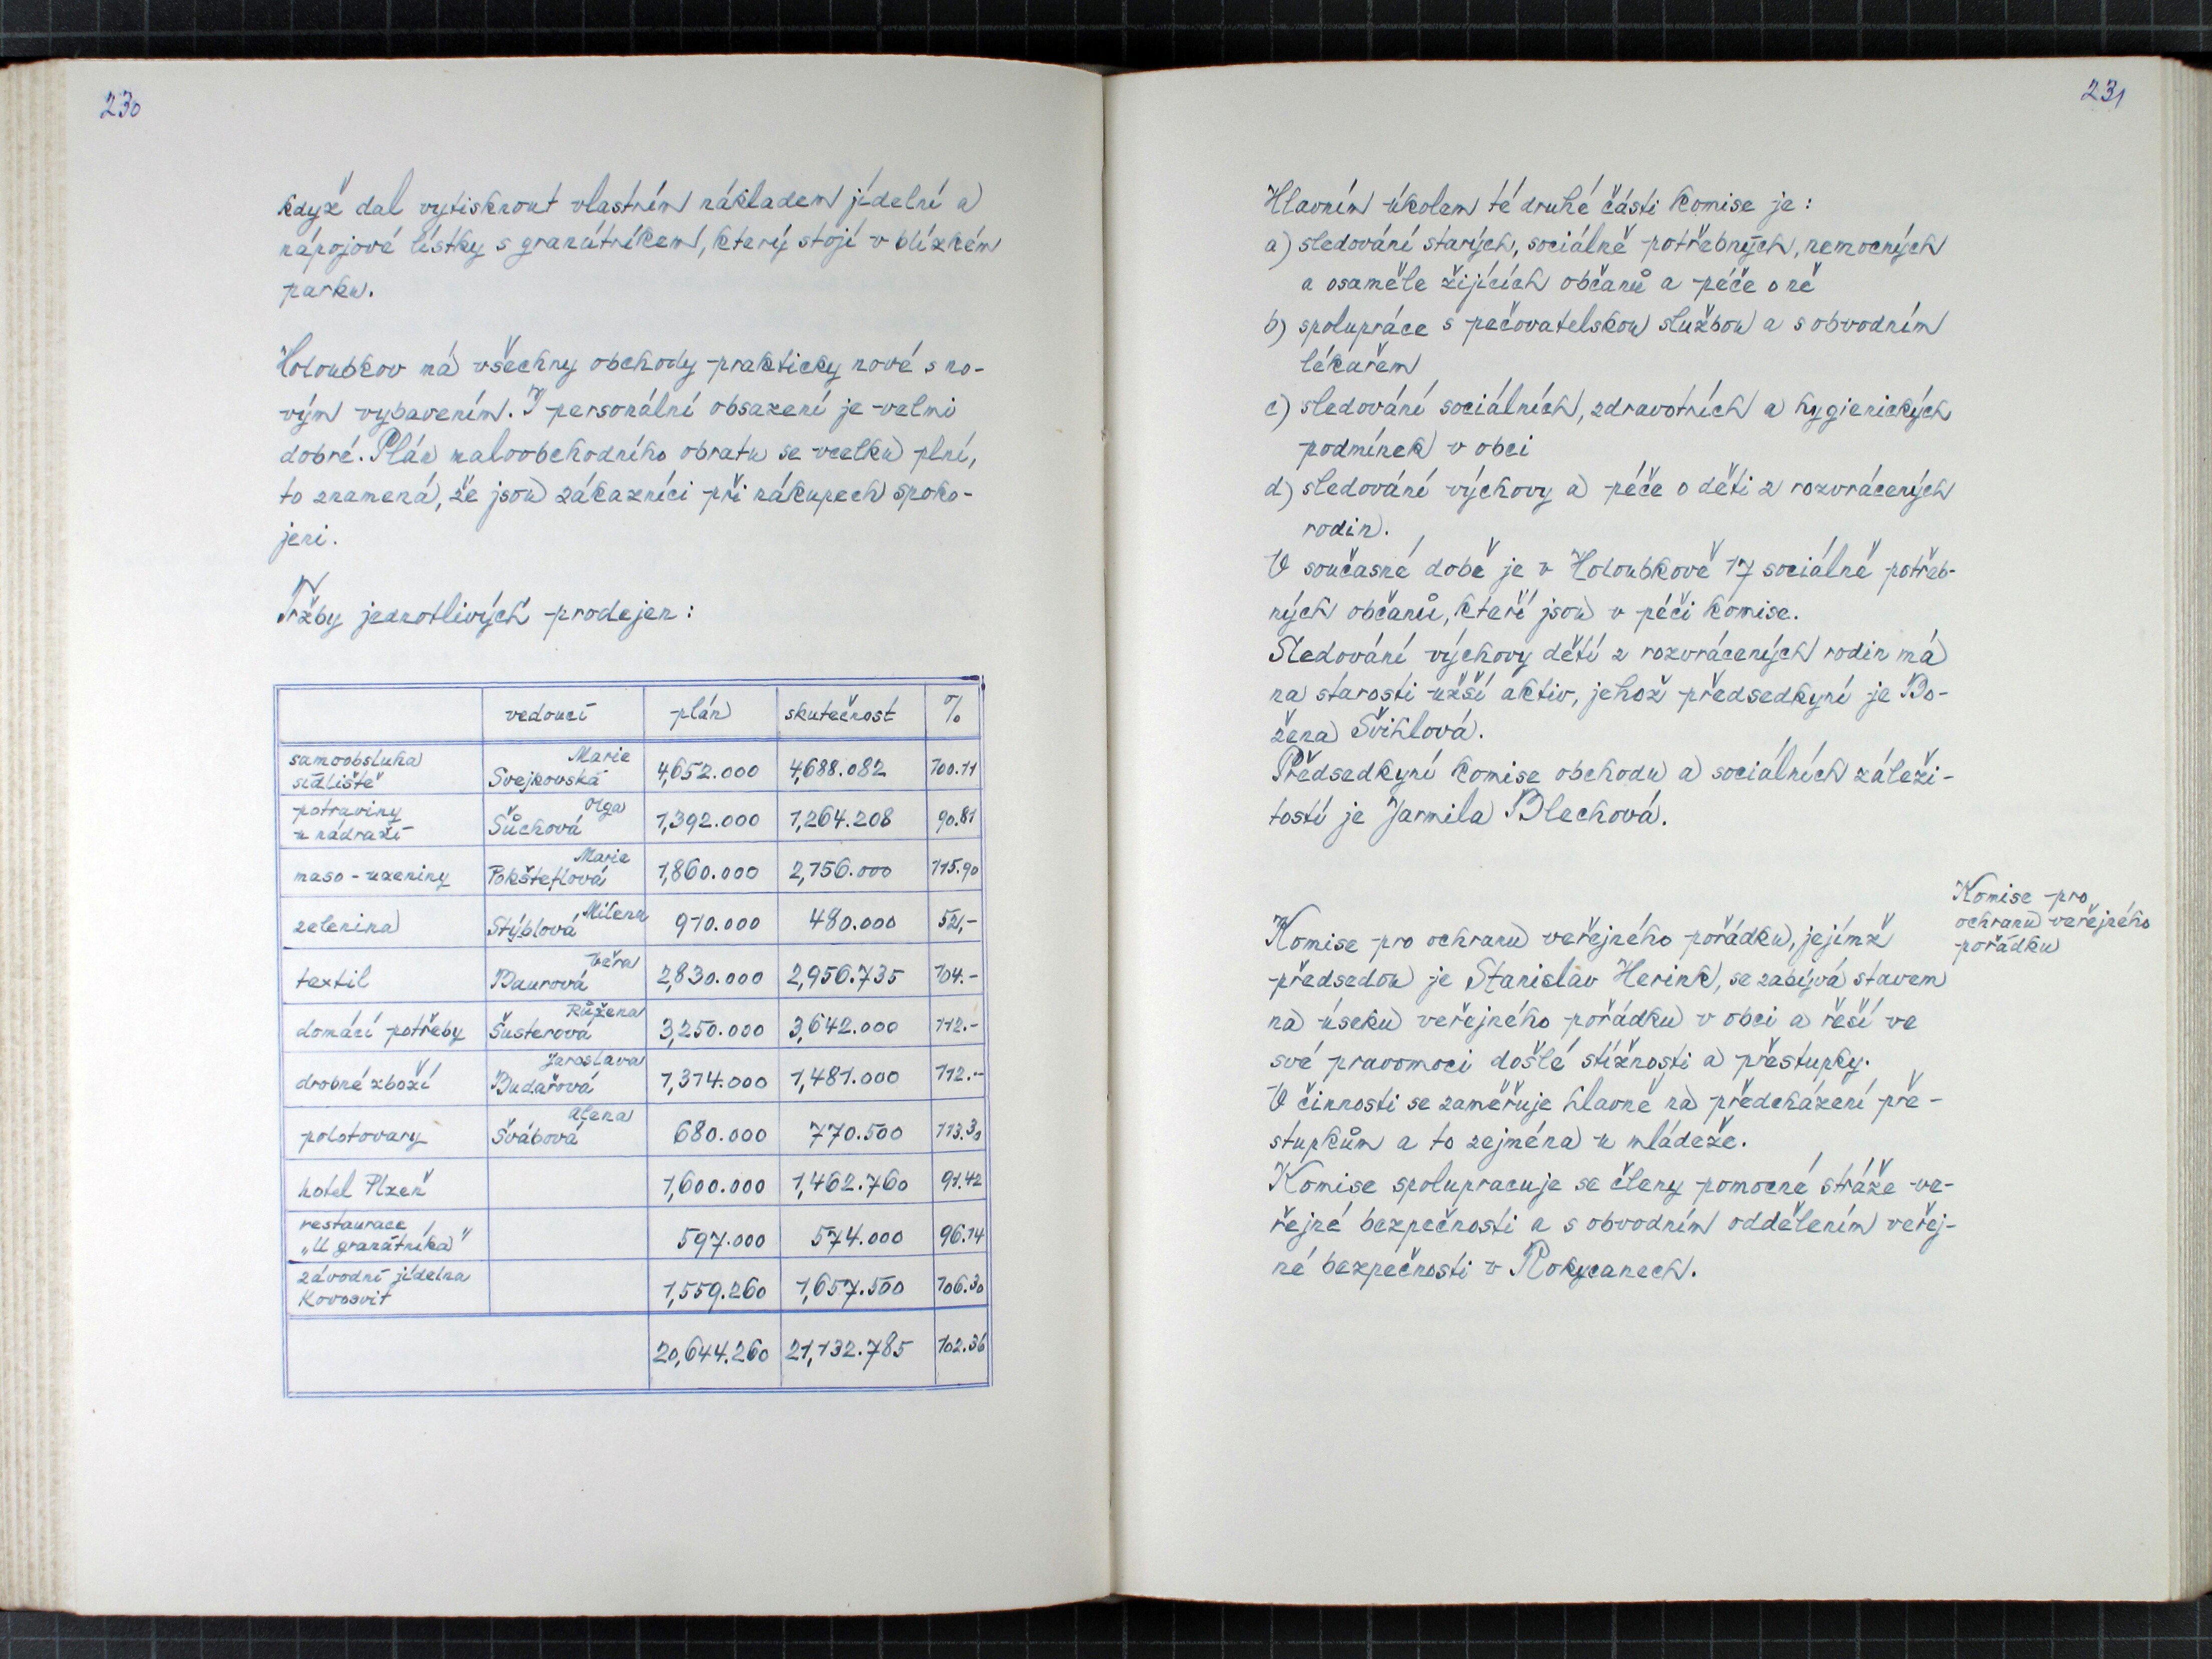 230
když dal vytisknout vlastním nákladem jídelní a
nápojové lístky s granátníkem, který stojí v blízkém
parku.
Holoubkov má všechny obchody prakticky nové s no-
vým vybavením. I personální obsazení je velmi
dobré. Plán maloobchodního obratu se vcelku plní,
to znamená, že jsou zákazníci při nákupech spoko-
jeni.
Tržby jednotlivých prodejen:
vedoucí plán skutečnost %
samoobsluha sídliště Marie Svejkovská 4,652.000 4,688.082 100.11
potraviny u nádraží Olga Šůchová 1,392.000 1,264.208 90.81
maso - uzeniny Marie Pokšteflová 1,860.000 2,156.000 115.90
zelenina Milena Stýblová 910.000 480.000 52,-
textil Věra Baurová 2,830.000 2,956.735 104.-
domácí potřeby Růžena Šusterová 3,250.000 3,642.000 112.-
drobné zboží Jaroslava Budařová 1,314.000 1,481.000 112.-
polotovary Alena Švábová 680.000 770.500 113.30
hotel Plzeň 1,600.000 1,462.760 91.42
restaurace „U granátníka" 597.000 574.000 96.14
závodní jídelna Kovosvit 1,559.260 1,657.500 106.30
20,644.260 21,132.785 102.36
231
Hlavním úkolem té druhé části komise je:
a) sledování starých, sociálně potřebných, nemocných
a osaměle žijících občanů a péče o ně
b) spolupráce s pečovatelskou službou a s obvodním
lékařem
c) sledování sociálních, zdravotních a hygienických
podmínek v obci
d) sledování výchovy a péče o děti z rozvrácených
rodin.
V současné době je v Holoubkově 17 sociálně potřeb-
ných občanů, kteří jsou v péči komise.
Sledování výchovy dětí z rozvrácených rodin má
na starosti užší aktiv, jehož předsedkyní je Bo-
žena Švihlová.
Předsedkyní komise obchodu a sociálních záleži-
tostí je Jarmila Blechová.
Komise pro
ochranu veřejného
pořádku
Komise pro ochranu veřejného pořádku, jejímž
předsedou je Stanislav Herink, se zabývá stavem
na úseku veřejného pořádku v obci a řeší ve
své pravomoci došlé stížnosti a přestupky.
V činnosti se zaměřuje hlavně na předcházení pře-
stupkům a to zejména u mládeže.
Komise spolupracuje se členy pomocné stráže ve-
řejné bezpečnosti a s obvodním oddělením veřej-
né bezpečnosti v Rokycanech.